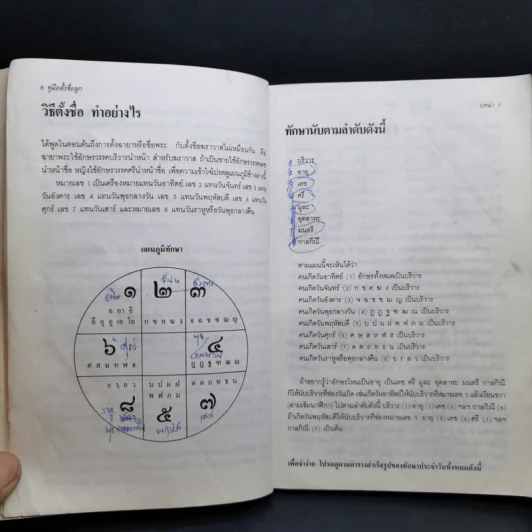 6 คู่มือตั้งชื่อลูก
วิธีตั้งชื่อ ทำอย่างไร
ได้พูดในตอนต้นถึงการตั้งฉายาหรือชื่อพระ กับตั้งชื่อฆราวาสไม่เหมือนกัน คือ
ฉายาพระใช้อักษรวรรคบริวารนำหน้า สำหรับฆราวาส ถ้าเป็นชายใช้อักษรวรรคเดช
นำหน้าชื่อ หญิงใช้อักษรวรรคศรีนำหน้าชื่อ เพื่อความเข้าใจโปรดดูแผนภูมิข้างล่างนี้
หมายเลข 1 เป็นเครื่องหมายแทนวันอาทิตย์ เลข 2 แทนวันจันทร์ เลข 3 แทน
วันอังคาร เลข 4 แทนวันพุธกลางวัน เลข 5 แทนวันพฤหัสบดี เลข 6 แทนวัน
ศุกร์ เลข 7 แทนวันเสาร์ และหมายเลข 8 แทนวันราหูหรือวันพุธกลางคืน
แผนภูมิทักษา
๑ ๒ ๓
อ อา อิ
อี อุ อู เอ โอ
ก ข ค ฆ ง
จ ฉ ช ซ ฌ ญ
๖ ศุกร์
ศ ส ษ ห ฬ ฮ
พุธ
๔
ฎ ฏ ฐ ฑ ฒ ณ
ย ร ล ว
บ ป ผ ฝ
พ ฟ ภ ม
ด ต ถ ท ธ น
๘ ๕ ๗
พฤหัส
เสาร์
บทนำ 7
ทักษานับตามลำดับดังนี้
บริวาร
อายุ
เดช
ศรี
มูละ
อุตสาหะ
มนตรี
กาลกิณี
ตามแผนนี้จะเห็นได้ว่า
คนเกิดวันอาทิตย์ (1) อักษรทั้งหมดเป็นบริวาร
คนเกิดวันจันทร์ (2) ก ข ค ฆ ง เป็นบริวาร
คนเกิดวันอังคาร (3) จ ฉ ช ซ ฌ ญ เป็นบริวาร
คนเกิดวันพุธกลางวัน (4) ฎ ฏ ฐ ฑ ฒ ณ เป็นบริวาร
คนเกิดวันพฤหัสบดี (5) บ ป ผ ฝ พ ฟ ภ ม เป็นบริวาร
คนเกิดวันศุกร์ (6) ศ ษ ส ห ฬ ฮ เป็นบริวาร
คนเกิดวันเสาร์ (7) ด ต ถ ท ธ น เป็นบริวาร
คนเกิดวันราหูหรือวันพุธกลางคืน (8) ย ร ล ว เป็นบริวาร
ถ้าอยากรู้ว่าอักษรไหนเป็นอายุ เป็นเดช ศรี มูละ อุตสาหะ มนตรี กาลกิณี
ก็ให้นับบริวารที่ช่องวันเกิด เช่นเกิดวันอาทิตย์ให้นับบริวารที่หมายเลข 1 แล้วเวียนขวา
(ตามเข็มนาฬิกา) ไปตามลำดับดังนี้ บริวาร (1) อายุ (2) เดช (3) ฯลฯ กาลกิณี (6)
ถ้าเกิดวันพฤหัสบดีให้นับบริวารที่ช่องหมายเลข 5 อายุ (8) เดช (6) ศรี (1) ฯลฯ
กาลกิณี (7) เป็นต้น
เพื่อจำง่าย โปรดดูตามตารางสำเร็จรูปของทักษาประจำวันทั้งหมดดังนี้